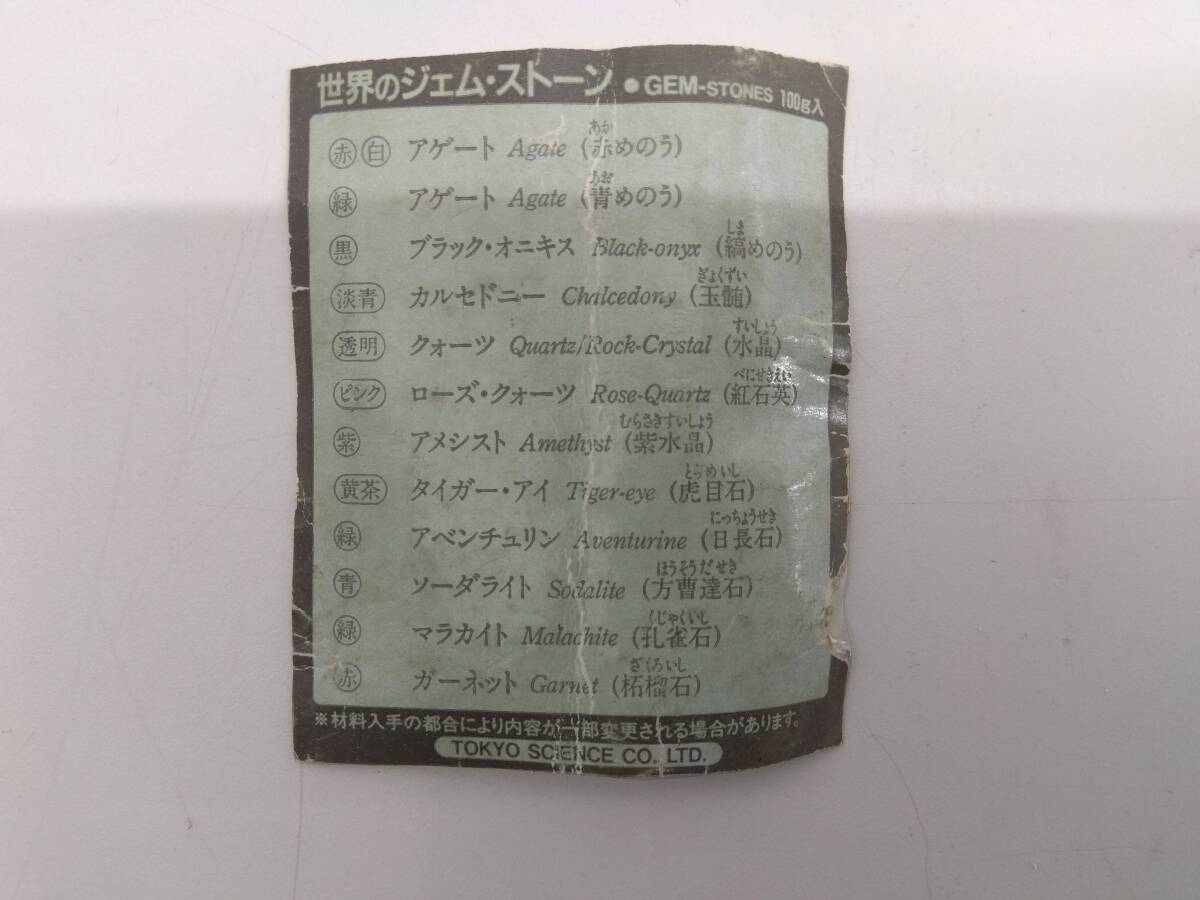 世界のジェム・ストーン ●GEM-STONES 100g入
赤 白 アゲート Agate (赤めのう)
あか
緑 アゲート Agate (青めのう)
あお
黒 ブラック・オニキス Black-onyx (縞めのう)
しま
淡青 カルセドニー Chalcedony (玉髄)
ぎょくずい
透明 クォーツ Quartz/Rock-Crystal (水晶)
すいしょう
ピンク ローズ・クォーツ Rose-Quartz (紅石英)
べにせきえい
紫 アメシスト Amethyst (紫水晶)
むらさきすいしょう
黄茶 タイガー・アイ Tiger-eye (虎目石)
とらめいし
緑 アベンチュリン Aventurine (日長石)
にっちょうせき
青 ソーダライト Sodalite (方曹達石)
ほうそうだせき
緑 マラカイト Malachite (孔雀石)
くじゃくいし
赤 ガーネット Garnet (柘榴石)
ざくろいし
※材料入手の都合により内容が一部変更される場合があります。
TOKYO SCIENCE CO., LTD.